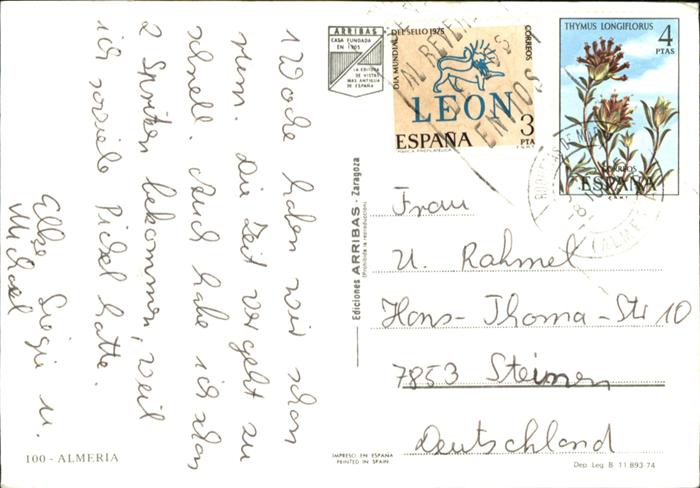 1 Woche haben wir schon
rum. Die Zeit vergeht zu
schnell. Auch habe ich schon
2 Spritzen bekommen, weil
ich soviele Pickel hatte.
Michael
100 - ALMERIA
ARRIBAS
CASA FUNDADA
EN 1905
LA EDITORA
DE VISTAS
MAS ANTIGUA
DE ESPAÑA
Ediciones ARRIBAS - Zaragoza
(Prohibida la reproducción)
DIA MUNDIAL DEL SELLO 1975
CORREOS
LEON
ESPAÑA
3
PTA
THYMUS LONGIFLORUS
4
PTAS
CORREOS
ESPAÑA
(ALMERIA)
Frau
U. Rahmel
Hans-Thoma-Str 10
7853 Steinen
Deutschland
IMPRESO EN ESPAÑA
PRINTED IN SPAIN
Dep. Leg. B. 11.893-74